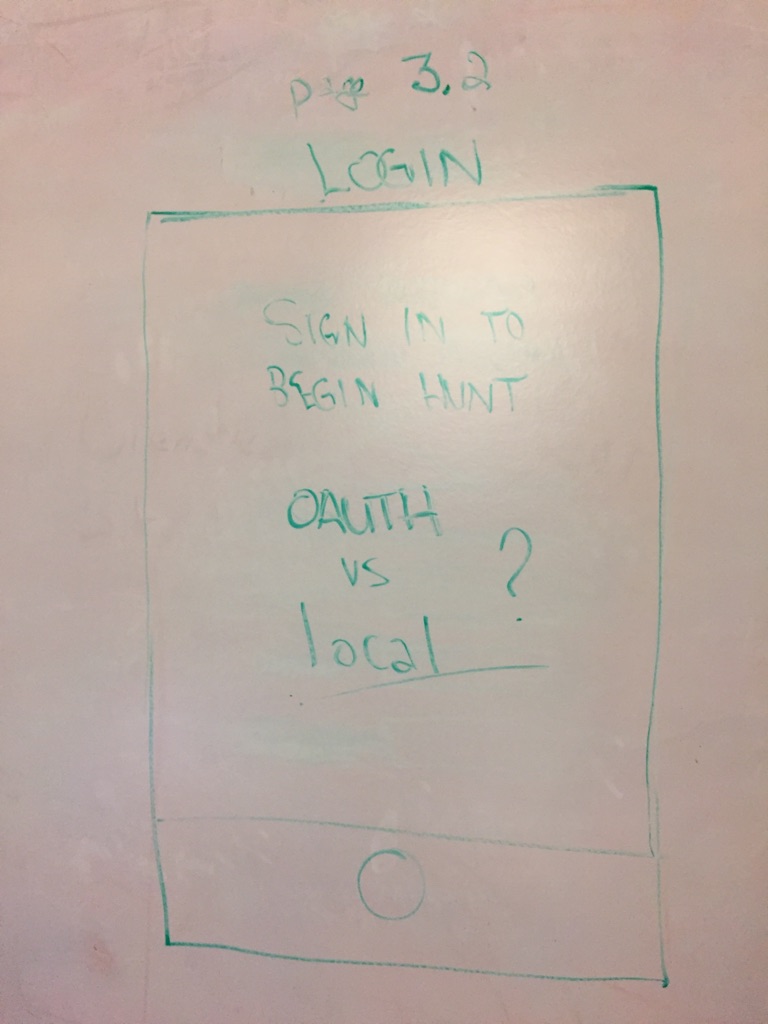 page 3.2
LOGIN
SIGN IN TO
BEGIN HUNT
OAUTH
vs ?
local